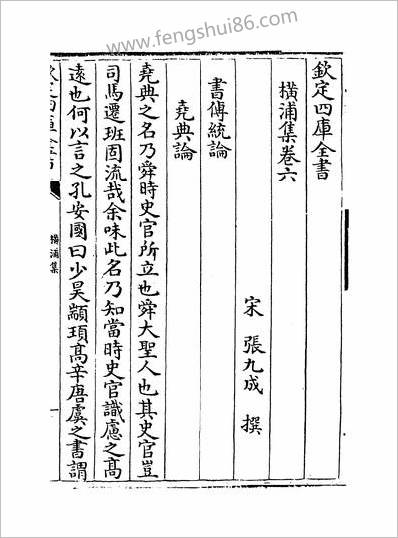 www.fengshui86.com
欽定四庫全書
橫浦集卷六
宋 張九成 撰
書傳統論
堯典論
堯典之名乃舜時史官所立也舜大聖人也其史官豈
司馬遷班固流哉余味此名乃知當時史官識慮之髙
遠也何以言之孔安國曰少昊顓頊髙辛唐虞之書謂
橫浦集
一